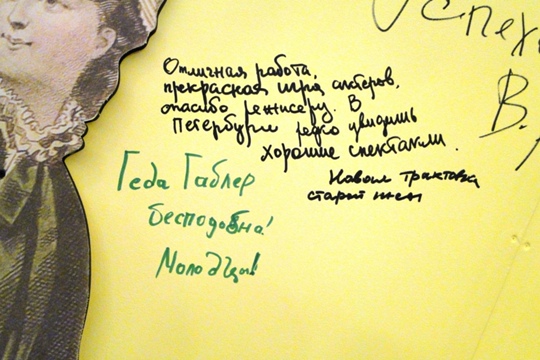 Успех
В.
Отличная работа,
прекрасная игра актеров,
спасибо режисеру. В
Петербурге редко увидишь
хорошие спектакли.
Новая трактовка
старой
Геда Габлер
бесподобна!
Молодцы!